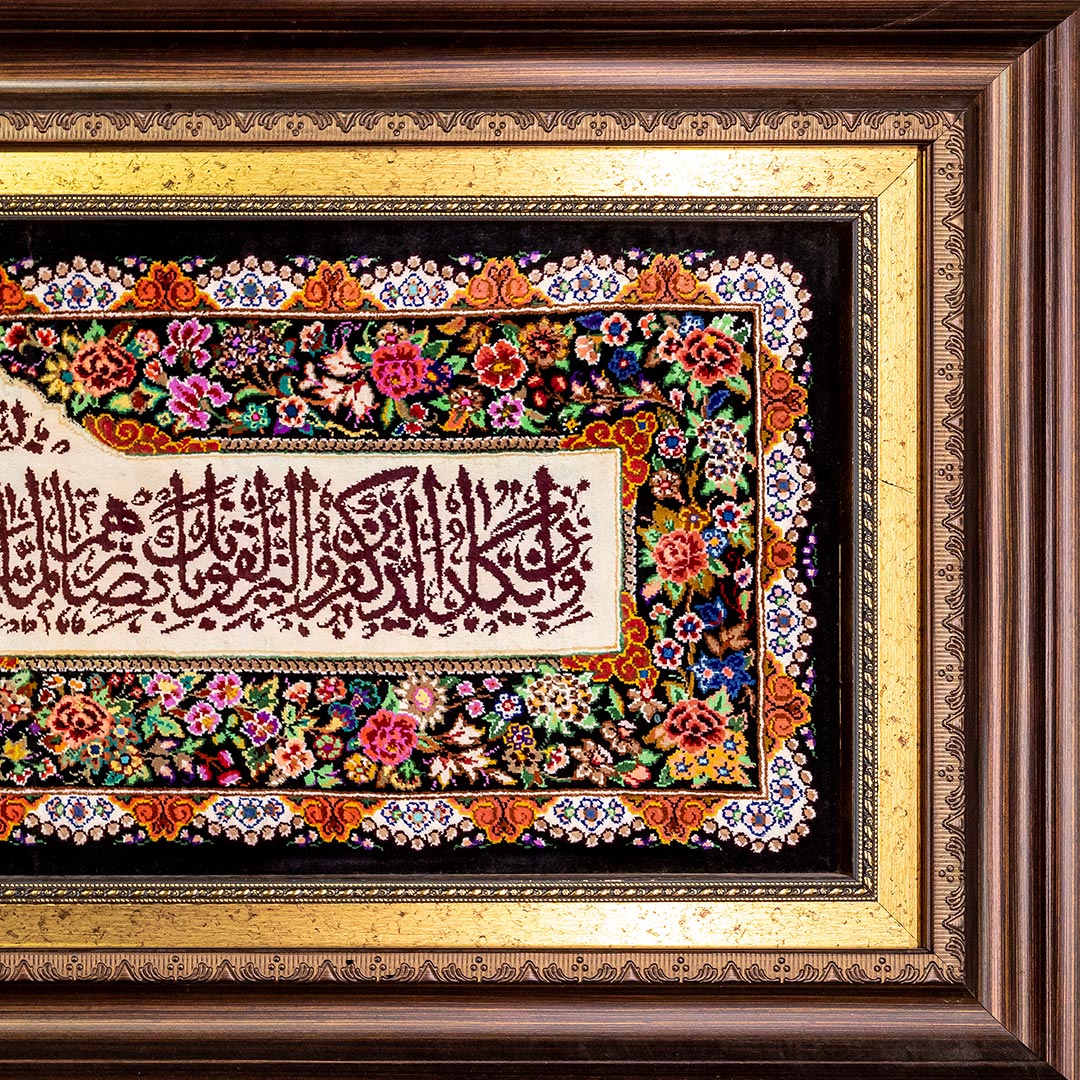 وَإِن يَكَادُ الَّذِينَ كَفَرُوا لَيُزْلِقُونَكَ بِأَبْصَارِهِمْ لَمَّا